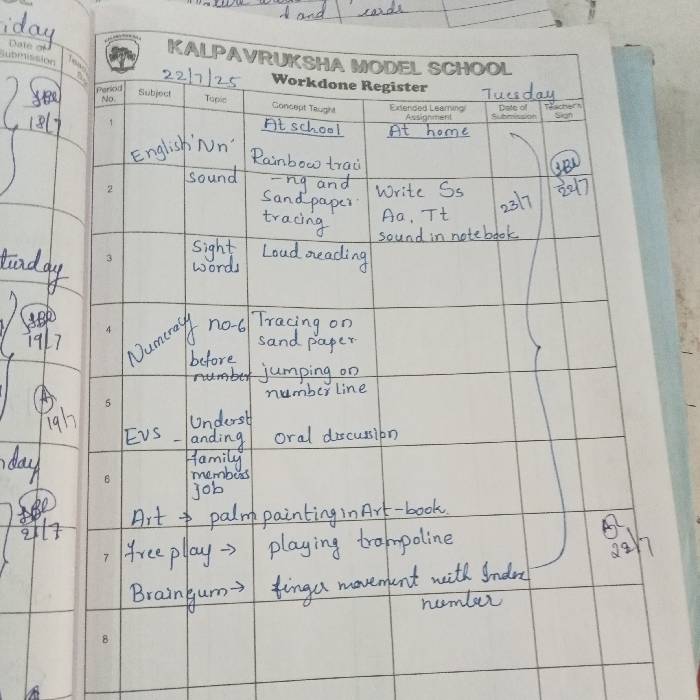 d and cards
iday
Date of
Submission
18/7
turday
19/7
19/7
day
21/7
KALPAVRUKSHA MODEL SCHOOL
22/7/25 Workdone Register Tuesday
Period No. Subject Topic Concept Taught Extended Learning/ Assignment Date of Submission Teacher's Sign
1 At school At home
English 'Nn' Rainbow traci
2 sound -ng and Write Ss 23/7 22/7
sandpaper Aa, Tt
tracing sound in notebook
3 Sight Loud reading
words
4 Numeracy no-6 Tracing on
sand paper
before jumping on
number number line
5
Underst
EVS - anding oral discussion
6 family
members
job
Art → palm painting in Art-book.
7 free play → playing trampoline
22/7
Braingum → finger movement with Index
number
8